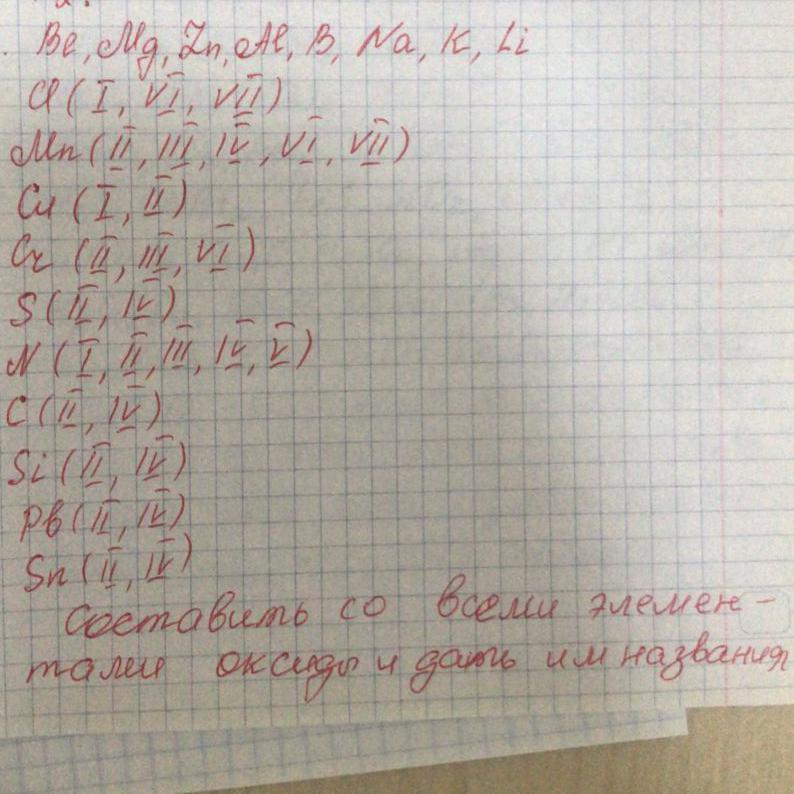 Be, Mg, Zn, Al, B, Na, K, Li
Cl (I, VI, VII)
Mn (II, III, IV, VI, VII)
Cu (I, II)
Cr (II, III, VI)
S (II, IV)
N (I, II, III, IV, V)
C (II, IV)
Si (II, IV)
Pb (II, IV)
Sn (II, IV)
Составить со всеми элемен-
тами оксиды и дать им названия